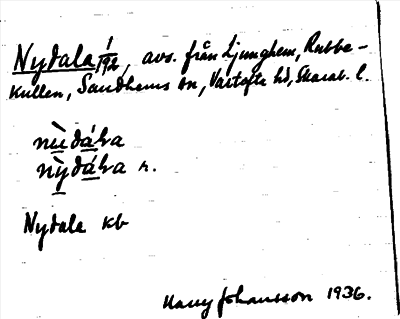 Nydala 1/192, avs. från Ljunghem, Rabbe-
kullen, Sandhems sn, Vartofte hd, Skarab. l.
nùdáɫa
nỳdáɫa r.
Nydale kb
Harry Johansson 1936.